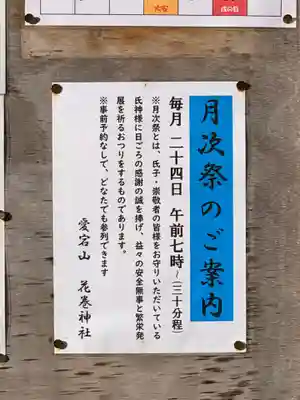 大安
月次祭のご案内
毎月 二十四日 午前七時~(三十分程)
※月次祭とは、氏子・崇敬者の皆様をお守りいただいている
氏神様に日ごろの感謝の誠を捧げ、益々の安全無事と繁栄発
展を祈るおつりをするものであります。
※事前予約なしで、どなたでも参列できます
愛宕山 花巻神社